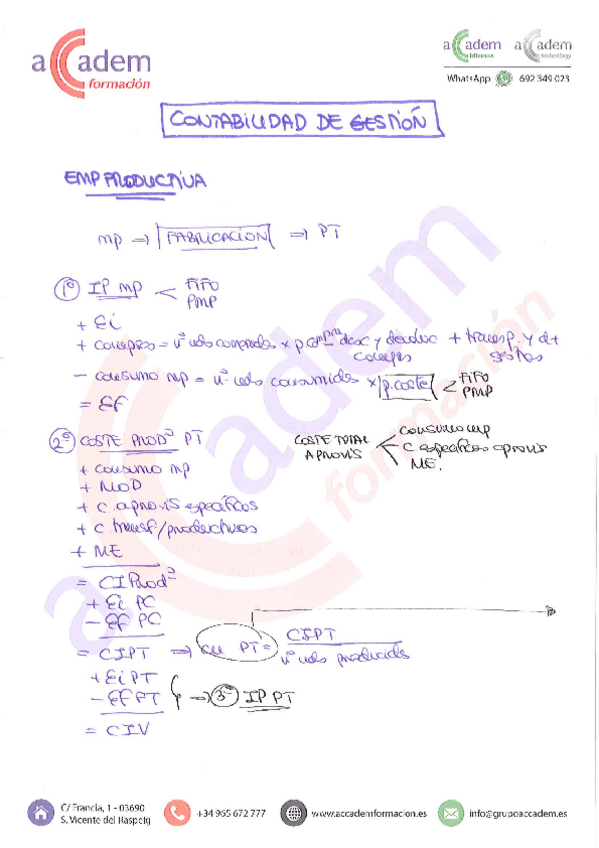 accadem
formación
accadem idiomas accadem technology
WhatsApp 692 349 023
CONTABILIDAD DE GESTIÓN
EMP PRODUCTIVA
mp ⇒ FABRICACION ⇒ PT
1º IP MP < FIFO
PMP
+ Ei
+ compras = nº uds compradas x p compra - desc y devoluc compras + transp. y dt gastos
- consumo mp = nº uds consumidas x p.coste < FIFO
PMP
= EF
2º COSTE PRODº PT
COSTE TOTAL APROVIS < consumo mp
C específicos aprovis
ME.
+ consumo mp
+ MOD
+ C aprovis específicos
+ C transf/productivos
+ ME
= CIProdº
+ Ei PC
- EF PC
= CIPT ⇒ cu PT = CIPT
nº uds producidas
+ Ei PT
- EF PT → 3º IP PT
= CIV
accadem
formación
C/ Francia, 1 - 03690
S. Vicente del Raspeig
+34 965 672 777
www.accademformacion.es
info@grupoaccadem.es